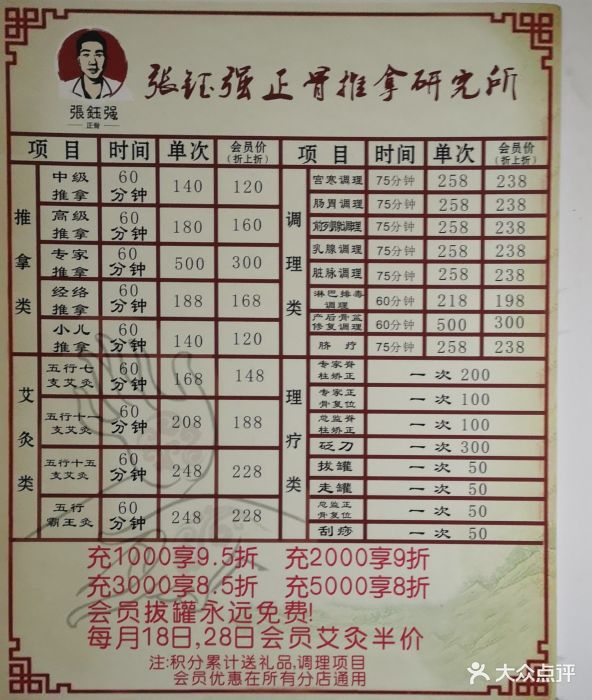 張鈺强
正骨
张钰强正骨推拿研究所
项目 时间 单次 会员价(折上折)
推拿类
中级推拿 60分钟 140 120
高级推拿 60分钟 180 160
专家推拿 60分钟 500 300
经络推拿 60分钟 188 168
小儿推拿 60分钟 140 120
艾灸类
五行七支艾灸 60分钟 168 148
五行十一支艾灸 60分钟 208 188
五行十五支艾灸 60分钟 248 228
五行霸王灸 60分钟 248 228
项目 时间 单次 会员价(折上折)
调理类
宫寒调理 75分钟 258 238
肠胃调理 75分钟 258 238
前列腺调理 75分钟 258 238
乳腺调理 75分钟 258 238
脏脉调理 75分钟 258 238
淋巴排毒调理 60分钟 218 198
产后骨盆修复调理 60分钟 500 300
脐疗 75分钟 258 238
理疗类
专家脊柱矫正 一次 200
专家正骨复位 一次 100
总监脊柱矫正 一次 100
砭刀 一次 300
拔罐 一次 50
走罐 一次 50
总监正骨复位 一次 50
刮痧 一次 50
充1000享9.5折 充2000享9折
充3000享8.5折 充5000享8折
会员拔罐永远免费!
每月18日,28日会员艾灸半价
注:积分累计送礼品,调理项目
会员优惠在所有分店通用
大众点评